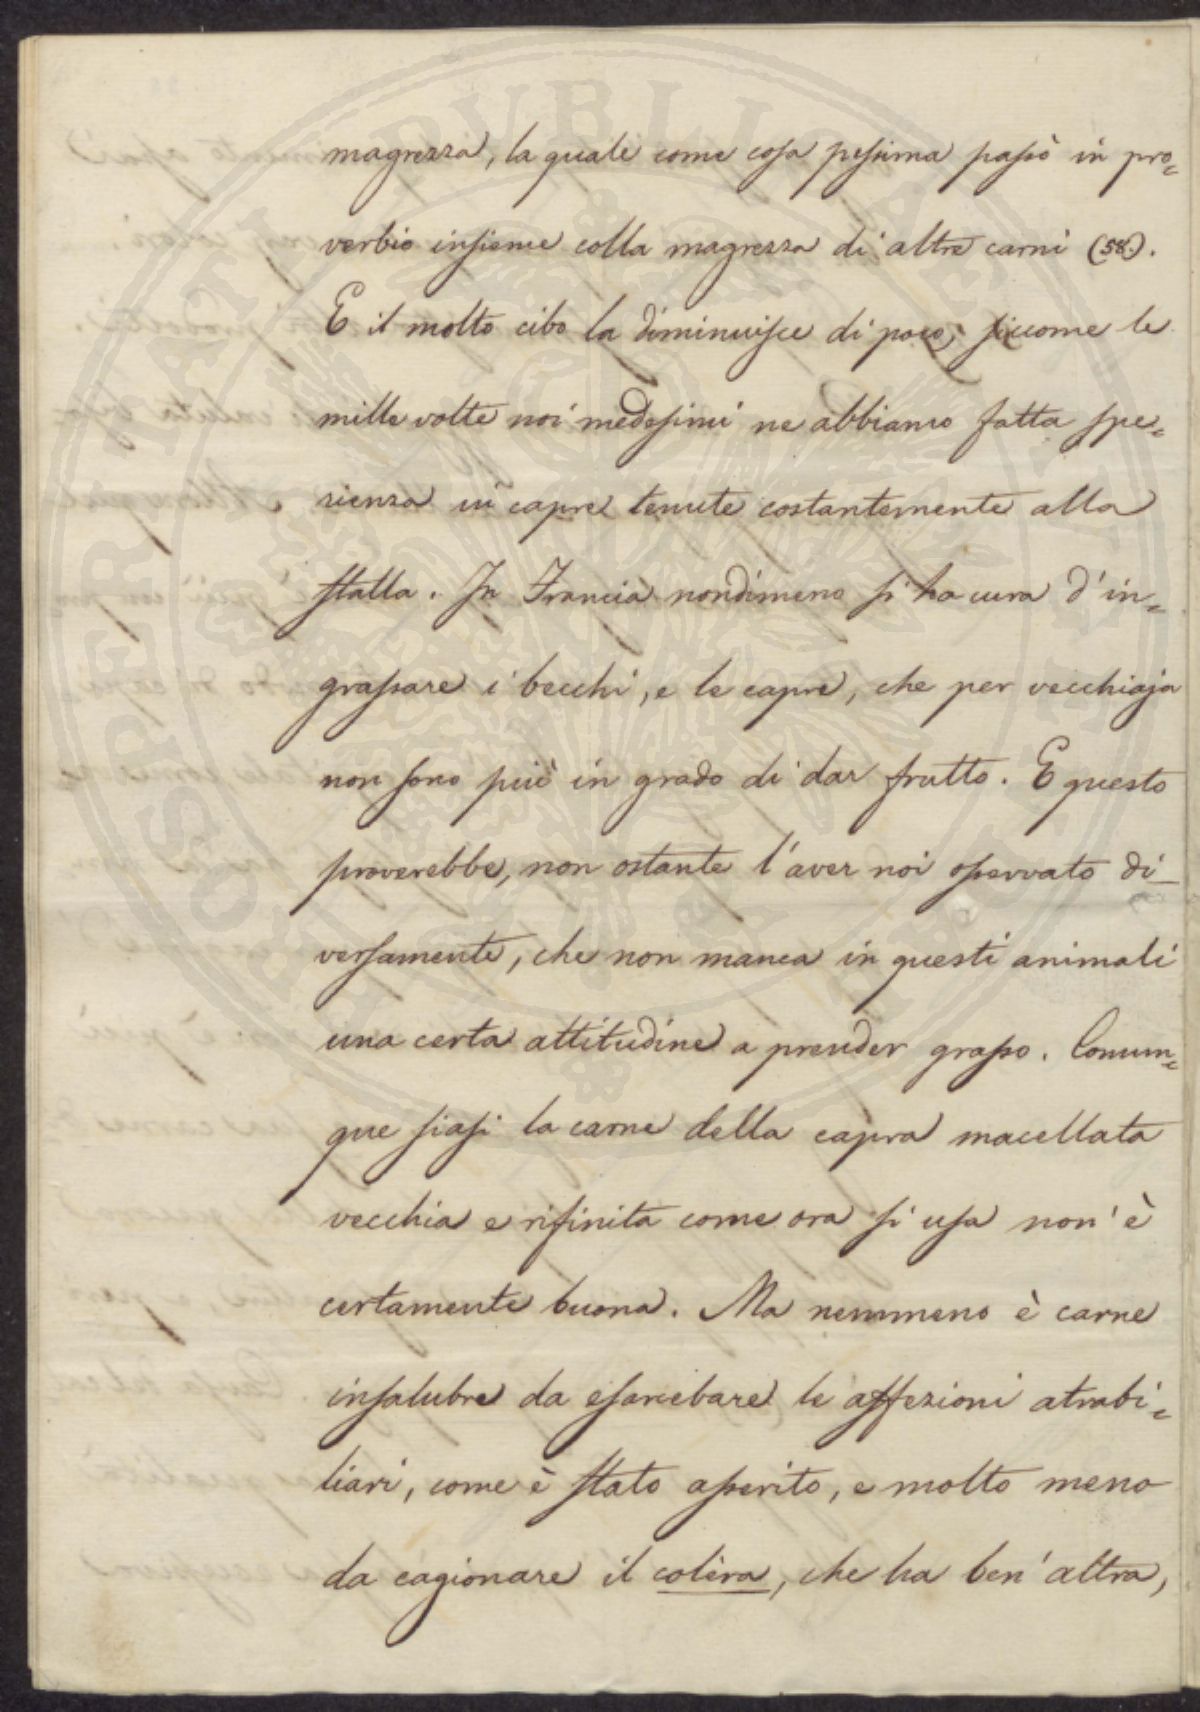 magrezza, la quale come cosa pessima passò in pro=
verbio insieme colla magrezza di altre carni (58.).
E il molto cibo la diminuisce di poco, siccome le
mille volte noi medesimi ne abbiamo fatta spe=
rienza in capre tenute costantemente alla
stalla. In Francia nondimeno si ha cura d'in=
grassare i becchi, e le capre, che per vecchiaja
non sono più in grado di dar frutto. E questo
proverebbe, non ostante l'aver noi osservato di=
versamente, che non manca in questi animali
una certa attitudine a prender grasso. Comun=
que siasi la carne della capra macellata
vecchia e rifinita come ora si usa non è
certamente buona. Ma nemmeno è carne
insalubre da esarcebare le affezioni atrabi=
liari, come è stato asserito, e molto meno
da cagionare il colèra, che ha ben'altra,